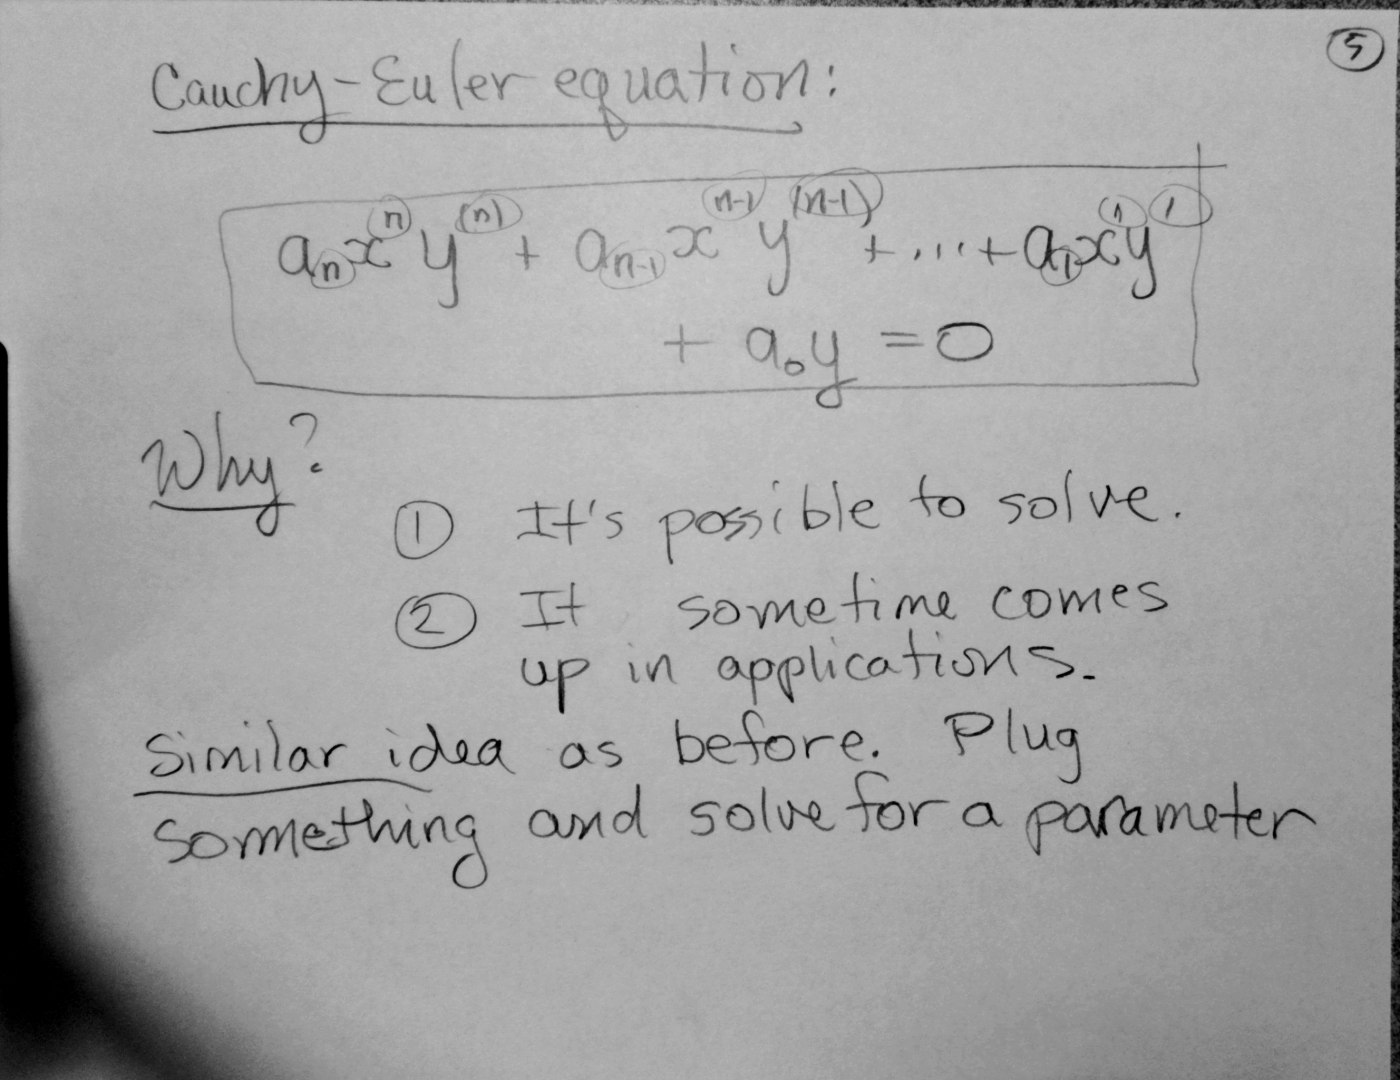 5
Cauchy-Euler equation:
aₙxⁿy⁽ⁿ⁾ + aₙ₋₁xⁿ⁻¹y⁽ⁿ⁻¹⁾ + ... + a₁x¹y'
+ a₀y = 0
Why?
1 It's possible to solve.
2 It sometime comes
up in applications.
Similar idea as before. Plug
something and solve for a parameter